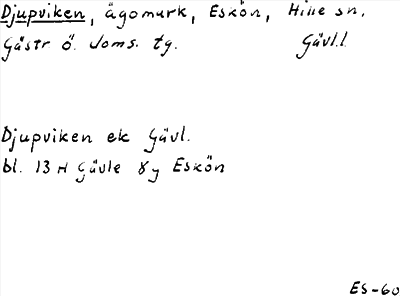 Djupviken, ägomark, Eskön, Hille sn,
Gästr ö. doms. tg. Gävl.l.
Djupviken ek Gävl.
bl. 13 H Gävle 8y Eskön
ES-60